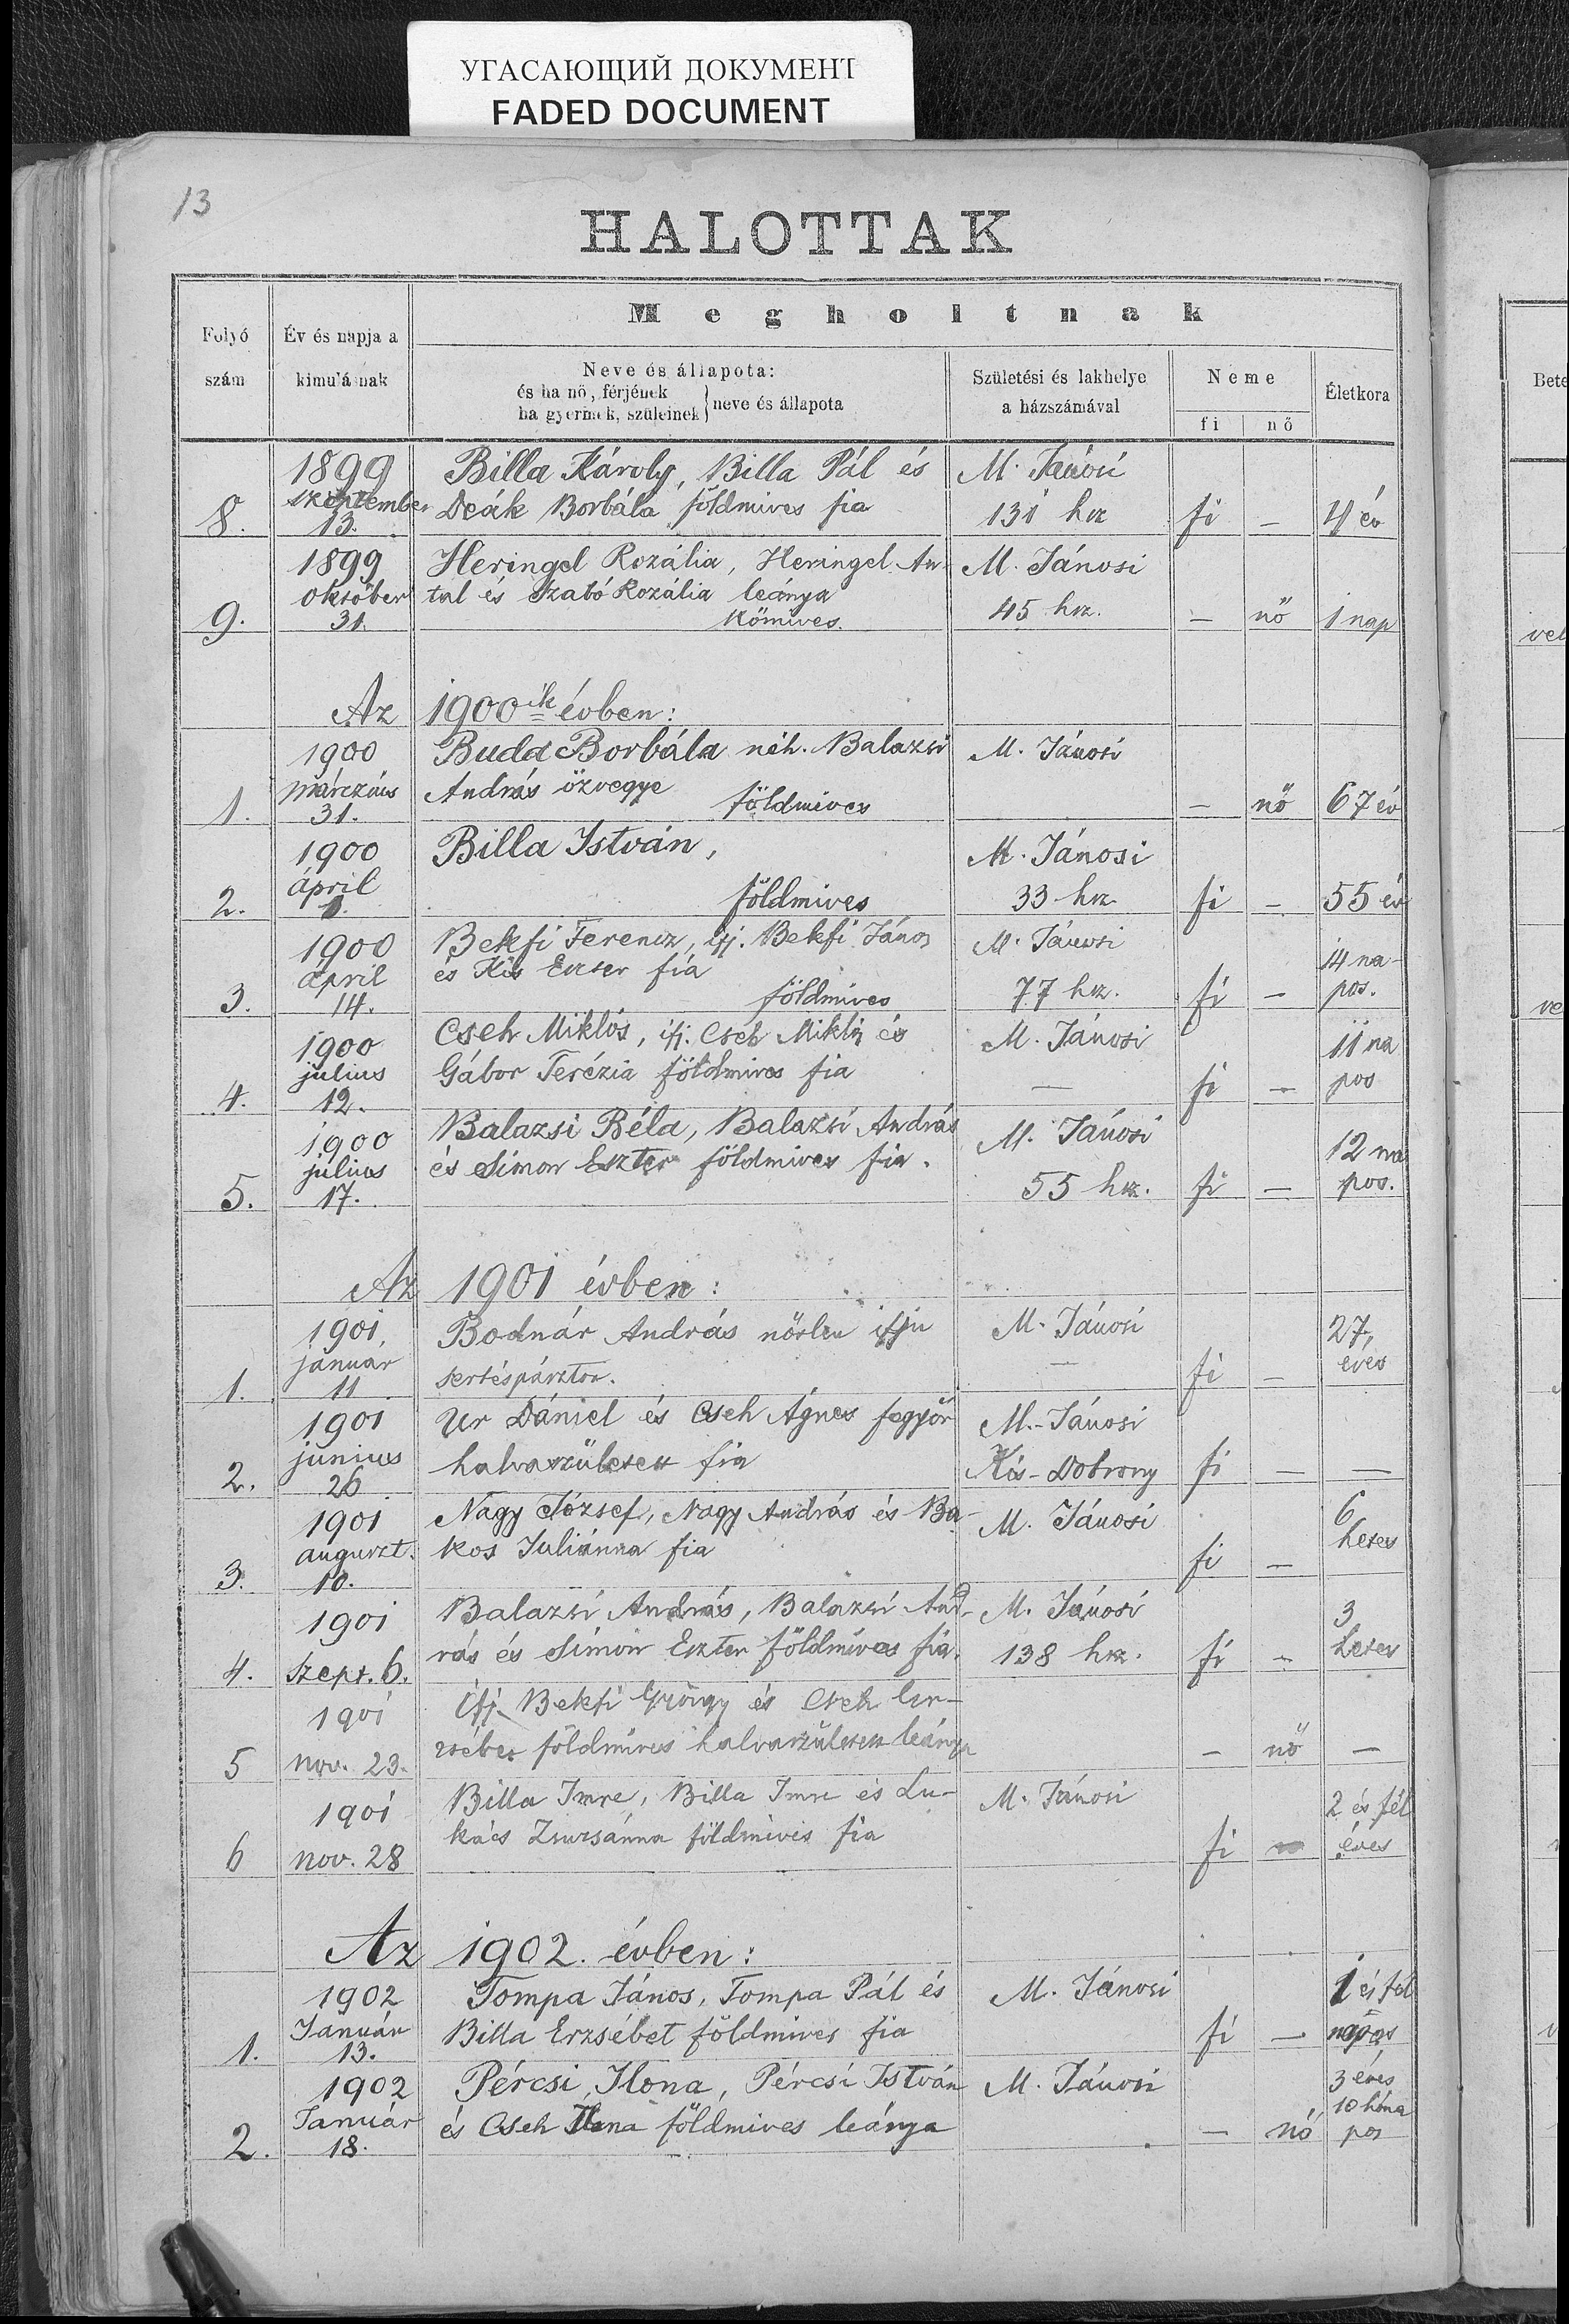 УГАСАЮЩИЙ ДОКУМЕНТ
FADED DOCUMENT
13
HALOTTAK
Folyó szám
Év és napja a kimulásnak
Megholtnak
Neve és állapota:
és ha nő, férjének
ha gyermek, szüleinek
neve és állapota
Születési és lakhelye
a házszámával
Neme
fi nő
Életkora
Bete
1899 Billa Károly, Billa Pál és M. Jánosi
szeptember Deák Borbála földmives fia
8. 13. 131 hsz fi — 4 év
1899 Heringel Rozália, Heringel An- M. Jánosi
október tal és Szabó Rozália leánya
9. 31. kömives. 45 hsz. — nö 1 nap
vel
Az 1900ik évben:
1900 Buda Borbála néh. Balazsi M. Jánosi
márczius András özvegye
1. 31. földmives — nö 67 év
1900 Billa István, M. Jánosi
ápril
2. 1. földmives 33 hsz. fi — 55 év
1900 Bekfi Ferencz, ifj. Bekfi János M. Jánosi 14 na-
ápril és Kis Eszter fia pos.
3. 14. földmives 77 hsz. fi —
ve
1900 Cseh Miklós, ifj. Cseh Miklós és M. Jánosi 11 na
julius Gábor Terézia földmives fia — fi — pos
4. 12.
1900 Balazsi Béla, Balazsi András M. Jánosi 12 na
julius és Simon Eszter földmives fia.
5. 17. 55 hsz. fi — pos.
Az 1901 évben:
1901. Bodnár András nőtlen ifju M. Jánosi 27,
január sertéspásztor. — fi — éves
1. 11
1901 Ur Dániel és Cseh Ágnes fegyőr M.-Jánosi
junius halvaszületett fia Kis-Dobrony fi — —
2. 26
1901 Nagy József, Nagy András és Ba- M. Jánosi 6
auguszt. kos Juliánna fia fi — hetes
3. 10.
1901 Balazsi András, Balazsi And- M. Jánosi 3
4. szept. 6. rás és Simon Eszter földmives fia. 138 hsz. fi — hetes
1901 ifj. Bekfi György és Cseh Er-
5 nov. 23. zsébet földmives halvaszületett leánya — nö —
1901 Billa Imre, Billa Imre és Lu- M. Jánosi 2 és fél
6 nov. 28 kács Zsuzsánna földmives fia fi éves
Az 1902. évben:
1902 Tompa János, Tompa Pál és M. Jánosi 1 és fél
Január Billa Erzsébet földmives fia fi — napos
1. 13.
1902 Pércsi Ilona, Pércsi István M. Jánosi 3 éves
Január és Cseh Ilona földmives leánya 10 hóna
2. 18. — nő pos